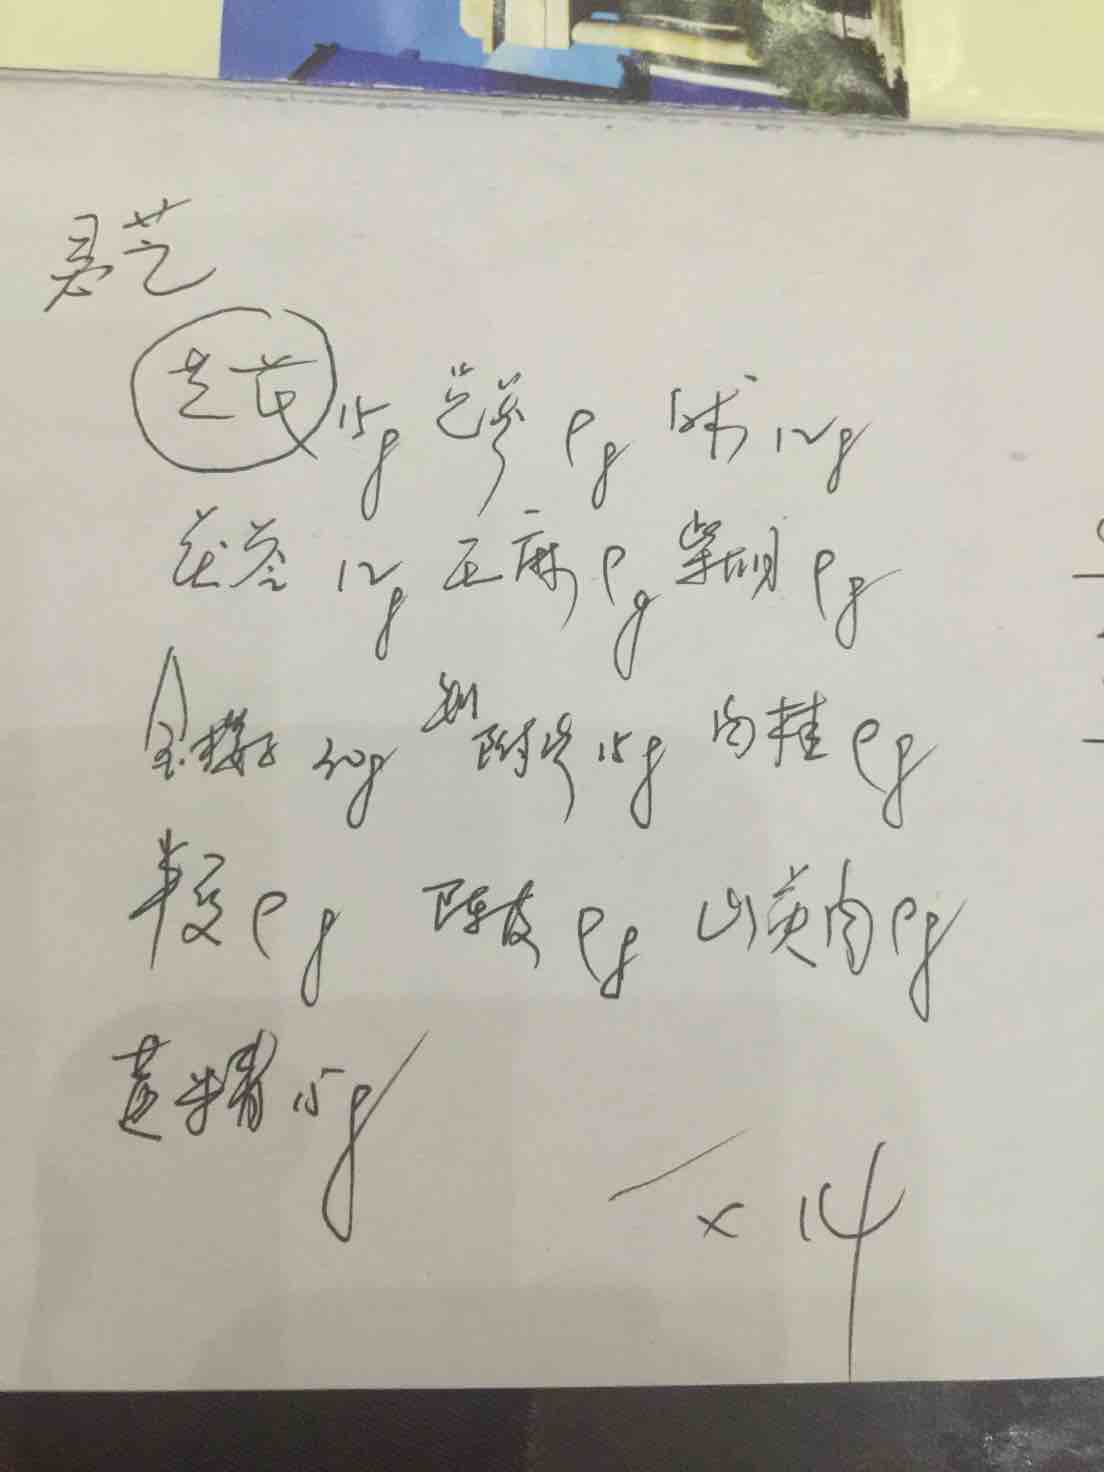 灵芝
芪 15g 党参 9g 白术 12g
茯苓 12g 升麻 9g 柴胡 9g
金樱子 30g 制附片 15g 肉桂 9g
半夏 9g 陈皮 9g 山萸肉 9g
黄精 15g
×14